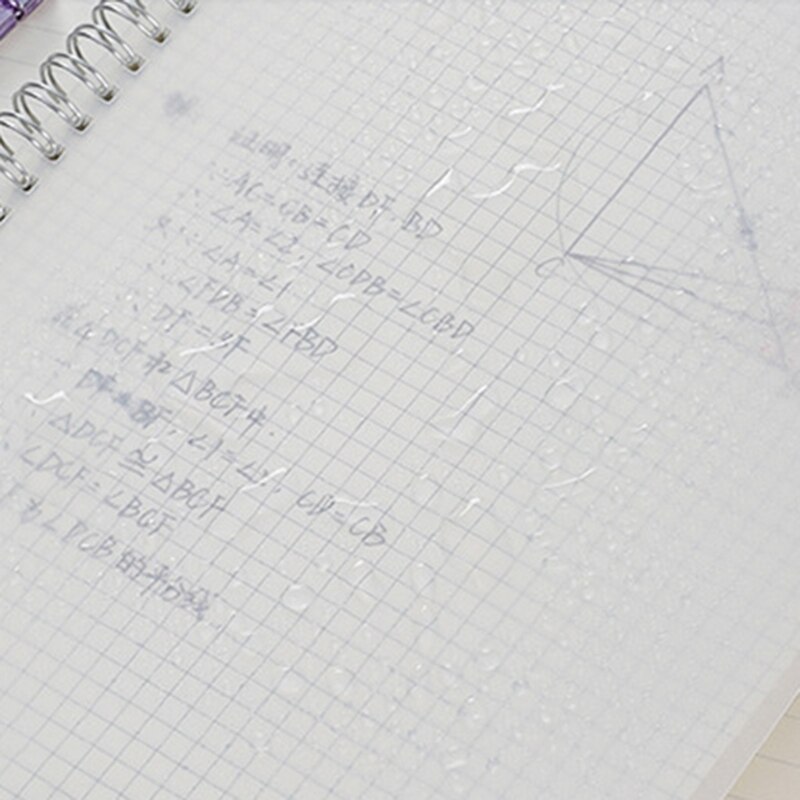 证明:连接DF、BD
∵AC=CB=CD
∴∠A=∠2,∠CDB=∠CBD
又∵∠A=∠1
∴∠FDB=∠FBD
∴DF=BF
在△DCF和△BCF中.
DF=BF,∠1=∠2,CD=CB
∴△DCF≅△BCF
∴∠DCF=∠BCF
为∠DCB的平分线.
C